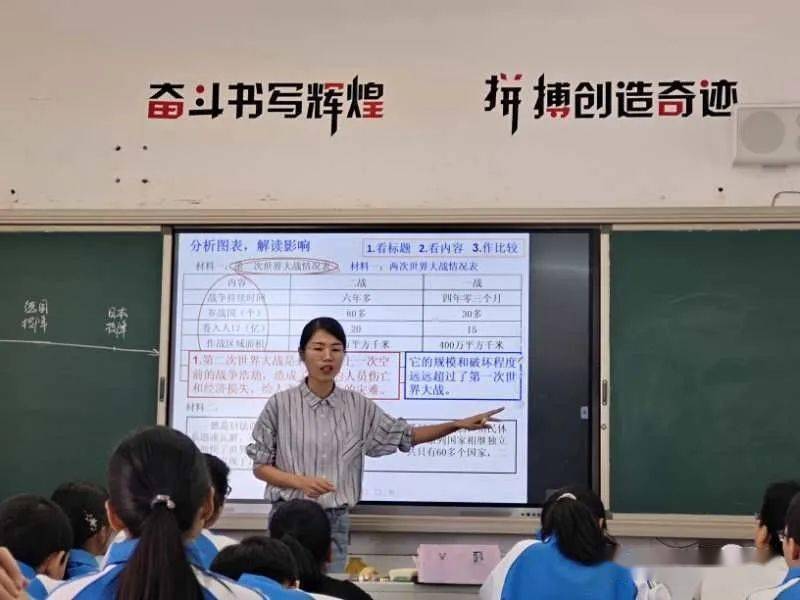 奋斗书写辉煌
拼搏创造奇迹
分析图表，解读影响
1.看标题 2.看内容 3.作比较
材料一：第一次世界大战情况表
材料一：两次世界大战情况表
内容 二战 一战
战争持续时间 六年多 四年零三个月
参战国（个） 60多 30多
卷入人口（亿） 20 15
作战区域面积 平方千米 400万平方千米
1.第二次世界大战是 一次空
前的战争浩劫，造成 人员伤亡
和经济损失，给人 的灾难。
它的规模和破坏程度
远远超过了第一次世
界大战。
材料二：
民休
列国家相继独立
共只有60多个国家，二
德国
投降
日本
投降